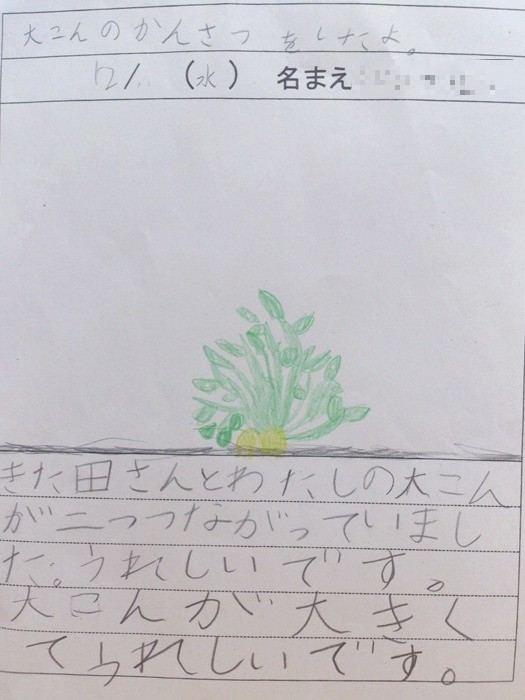 大こんのかんさつをしたよ。
(水) 名まえ
きた田さんとわたしの大こん
が二つつながっていまし
た。うれしいです。
大こんが大きく
てうれしいです。